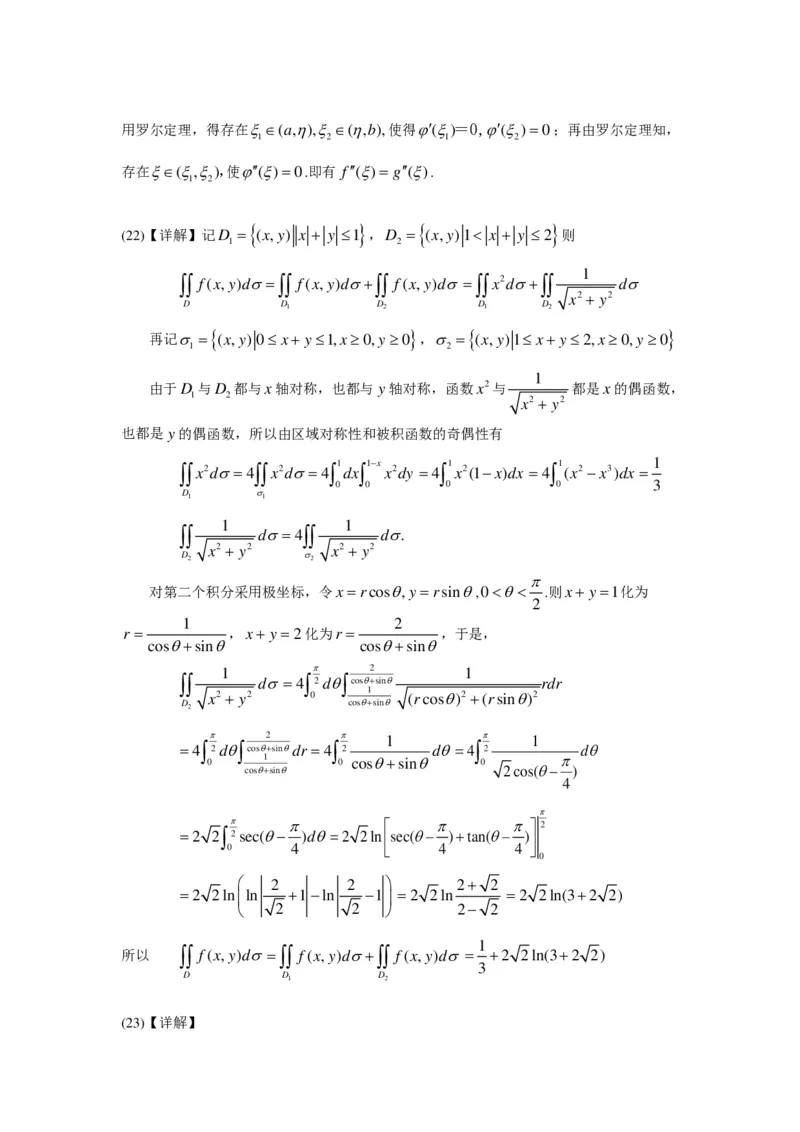 用罗尔定理，得存在ξ₁∈(a,η),ξ₂∈(η,b),使得φ′(ξ₁)=0,φ′(ξ₂)=0；再由罗尔定理知，
存在ξ∈(ξ₁,ξ₂),使φ″(ξ)=0.即有 f″(ξ)= g″(ξ).
(22)【详解】记D₁={(x,y)||x|+|y|≤1}，D₂={(x,y)|1<|x|+|y|≤2}则
∬_D f(x,y)dσ=∬_{D₁} f(x,y)dσ+∬_{D₂} f(x,y)dσ=∬_{D₁}x²dσ+∬_{D₂} 1/√(x²+y²) dσ
再记σ₁={(x,y)|0≤x+y≤1,x≥0,y≥0}，σ₂={(x,y)|1≤x+y≤2,x≥0,y≥0}
由于D₁与D₂都与x轴对称，也都与y轴对称，函数x²与 1/√(x²+y²) 都是x的偶函数，
也都是y的偶函数，所以由区域对称性和被积函数的奇偶性有
∬_{D₁}x²dσ=4∬_{σ₁}x²dσ=4∫₀¹dx∫₀^{1−x}x²dy=4∫₀¹x²(1−x)dx=4∫₀¹(x²−x³)dx=1/3
∬_{D₂} 1/√(x²+y²) dσ=4∬_{σ₂} 1/√(x²+y²) dσ.
对第二个积分采用极坐标，令x=rcosθ,y=rsinθ,0<θ<π/2.则x+y=1化为
r=1/(cosθ+sinθ)，x+y=2化为r=2/(cosθ+sinθ)，于是，
∬_{D₂} 1/√(x²+y²) dσ=4∫₀^{π/2}dθ∫_{1/(cosθ+sinθ)}^{2/(cosθ+sinθ)} 1/√((rcosθ)²+(rsinθ)²) rdr
=4∫₀^{π/2}dθ∫_{1/(cosθ+sinθ)}^{2/(cosθ+sinθ)}dr=4∫₀^{π/2} 1/(cosθ+sinθ) dθ=4∫₀^{π/2} 1/(√2cos(θ−π/4)) dθ
=2√2∫₀^{π/2}sec(θ−π/4)dθ=2√2ln[sec(θ−π/4)+tan(θ−π/4)]|₀^{π/2}
=2√2ln(ln|2/√2+1|−ln|2/√2−1|)=2√2ln (2+√2)/(2−√2)=2√2ln(3+2√2)
所以 ∬_D f(x,y)dσ=∬_{D₁} f(x,y)dσ+∬_{D₂} f(x,y)dσ=1/3+2√2ln(3+2√2)
(23)【详解】